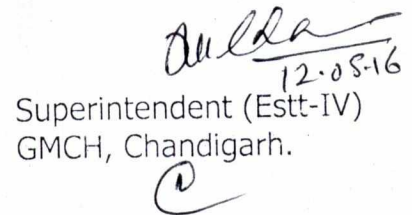 12.05.16
Superintendent (Estt-IV)
GMCH, Chandigarh.